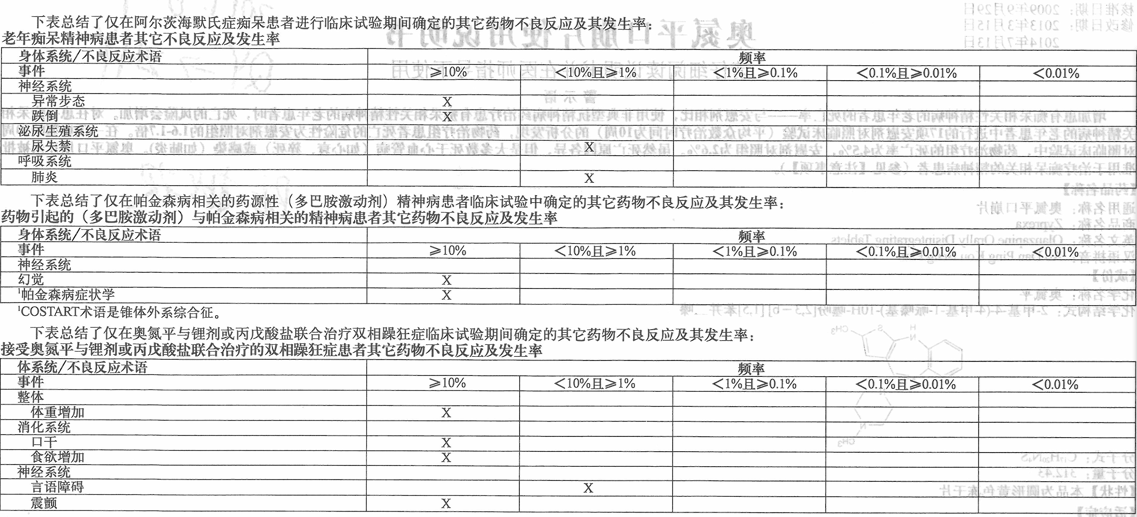 下表总结了仅在阿尔茨海默氏症痴呆患者进行临床试验期间确定的其它药物不良反应及其发生率：
老年痴呆精神病患者其它不良反应及发生率
身体系统/不良反应术语 频率
事件 ≥10% <10%且≥1% <1%且≥0.1% <0.1%且≥0.01% <0.01%
神经系统
异常步态 X
跌倒 X
泌尿生殖系统
尿失禁 X
呼吸系统
肺炎 X
下表总结了仅在帕金森病相关的药源性（多巴胺激动剂）精神病患者临床试验中确定的其它药物不良反应及其发生率：
药物引起的（多巴胺激动剂）与帕金森病相关的精神病患者其它不良反应及发生率
身体系统/不良反应术语 频率
事件 ≥10% <10%且≥1% <1%且≥0.1% <0.1%且≥0.01% <0.01%
神经系统
幻觉 X
¹帕金森病症状学 X
¹COSTART术语是锥体外系综合征。
下表总结了仅在奥氮平与锂剂或丙戊酸盐联合治疗双相躁狂症临床试验期间确定的其它药物不良反应及发生率：
接受奥氮平与锂剂或丙戊酸盐联合治疗的双相躁狂症患者其它不良反应及发生率
体系统/不良反应术语 频率
事件 ≥10% <10%且≥1% <1%且≥0.1% <0.1%且≥0.01% <0.01%
整体
体重增加 X
消化系统
口干 X
食欲增加 X
神经系统
言语障碍 X
震颤 X